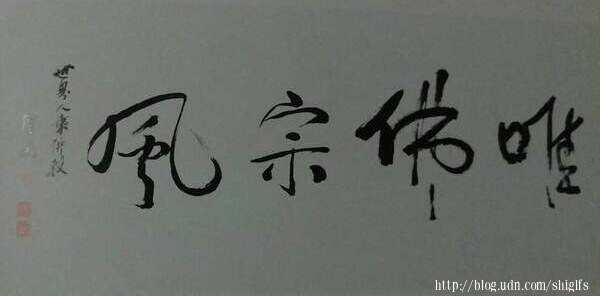 唯佛宗風
世界人乘佛教
http://blog.udn.com/shiglfs